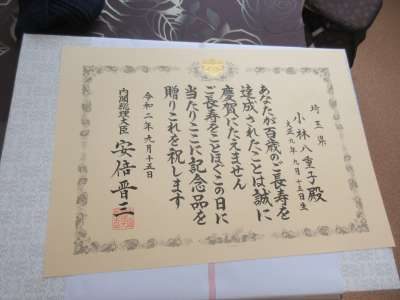 埼玉県
小林八重子殿
大正九年九月十五日生
あなたが百歳のご長寿を
達成されたことは誠に
慶賀にたえません
ご長寿をことほぐこの日に
当たりここに記念品を
贈りこれを祝します
令和二年九月十五日
内閣総理大臣 安倍晋三